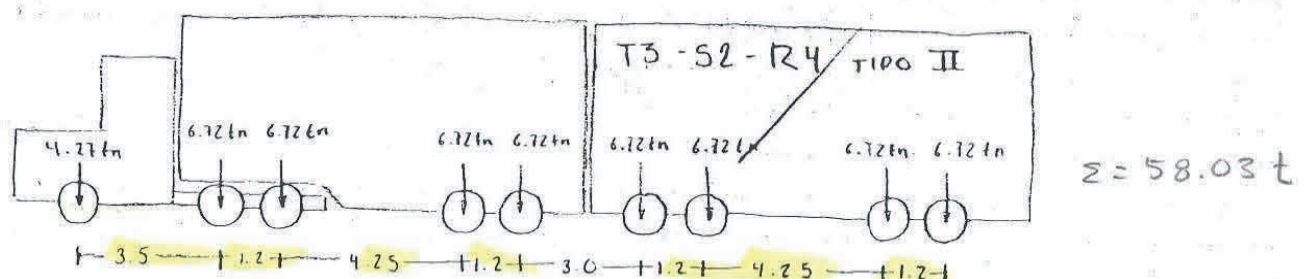 T3-S2-R4 TIPO II
4.27tn 6.72tn 6.72tn 6.72tn 6.72tn 6.72tn 6.72tn 6.72tn 6.72tn
Σ= 58.03 t
3.5 1.2 4.25 1.2 3.0 1.2 4.25 1.2